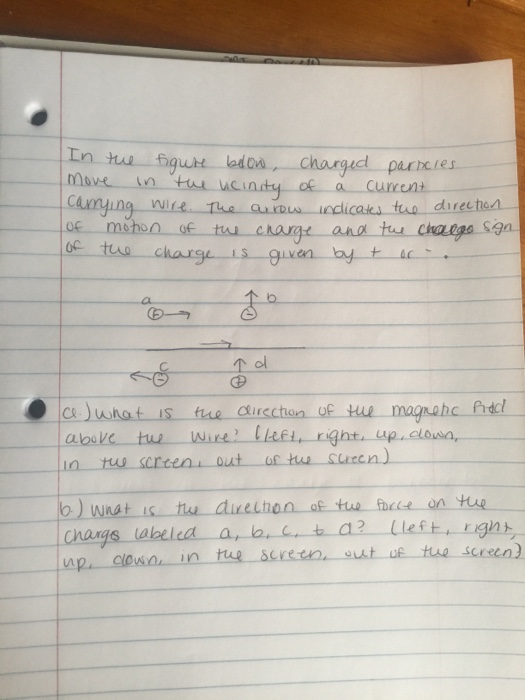 In the figure below, charged particles
move in the vicinity of a current
carrying wire. The arrow indicates the direction
of motion of the charge and the charge sign
of the charge is given by + or -.
a + b -
c - d +
a.) what is the direction of the magnetic field
above the wire? (left, right, up, down,
in the screen, out of the screen)
b.) What is the direction of the force on the
charge labeled a, b, c, + d? (left, right,
up, down, in the screen, out of the screen)